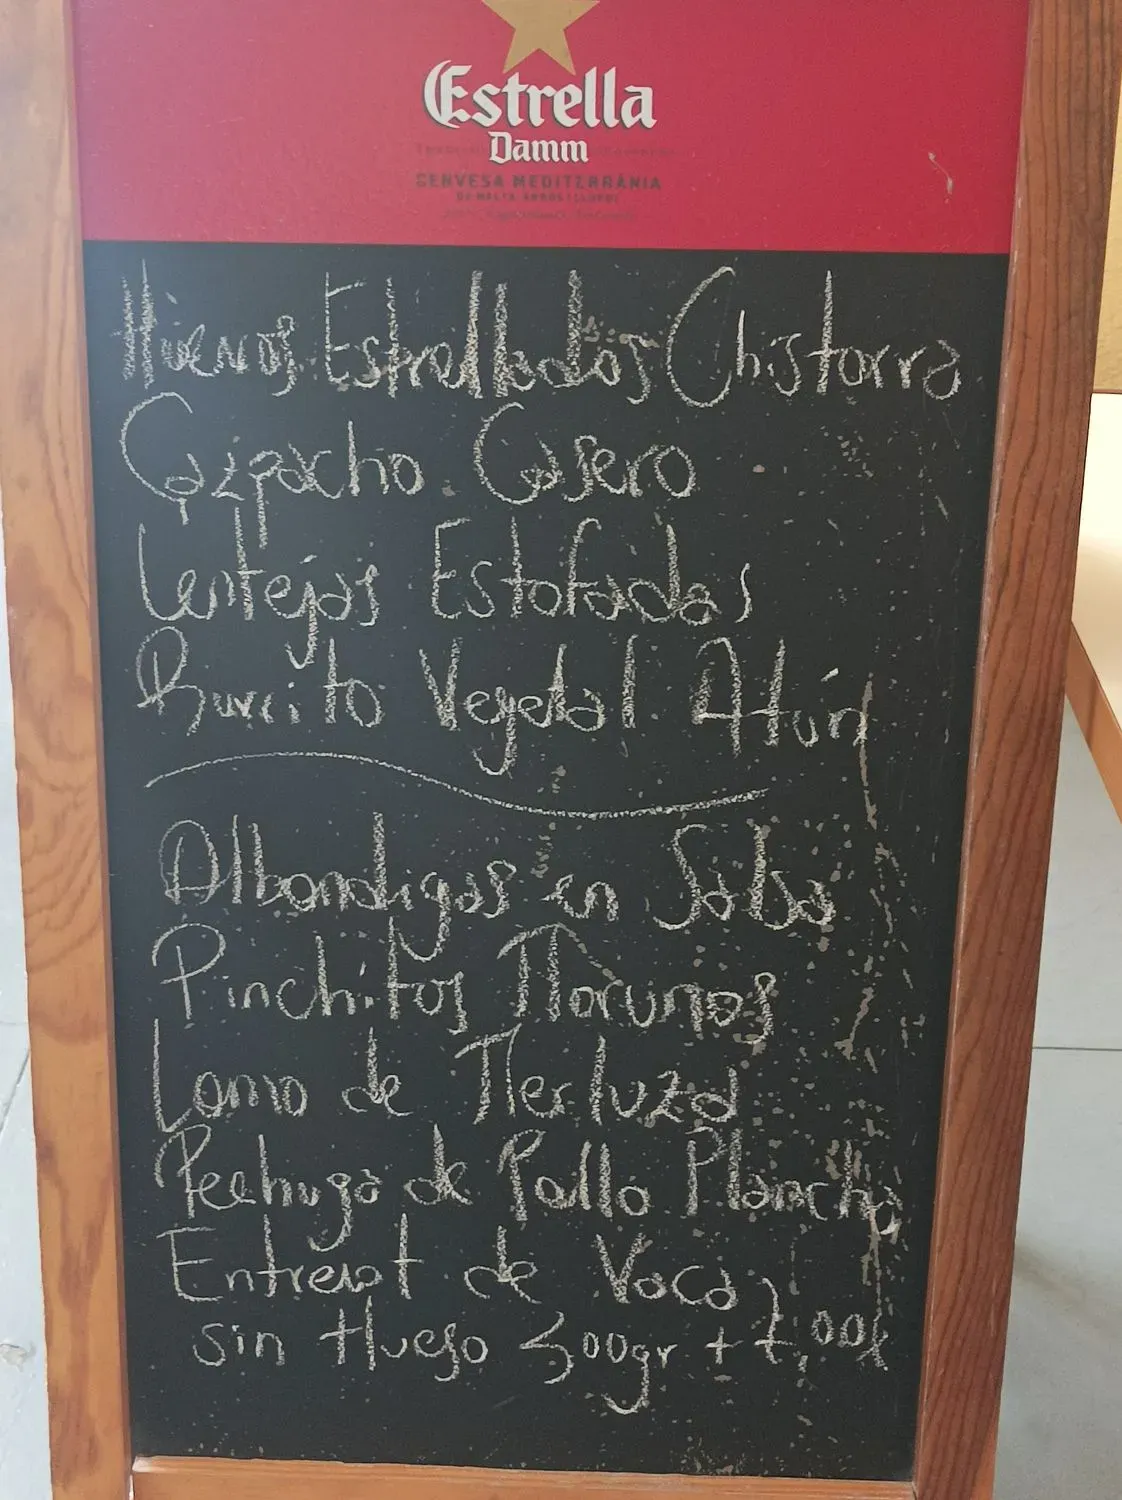 Estrella
Damm
CERVESA MEDITERRÀNIA
Huevos Estrellados Chistorra
Gazpacho Casero
Lentejas Estofadas
Burrito Vegetal Atún
Albondigas en Salsa
Pinchitos Morunos
Lomo de Merluza
Pechuga de Pollo Plancha
Entrecot de Vaca
sin Hueso 300gr + 7,00€